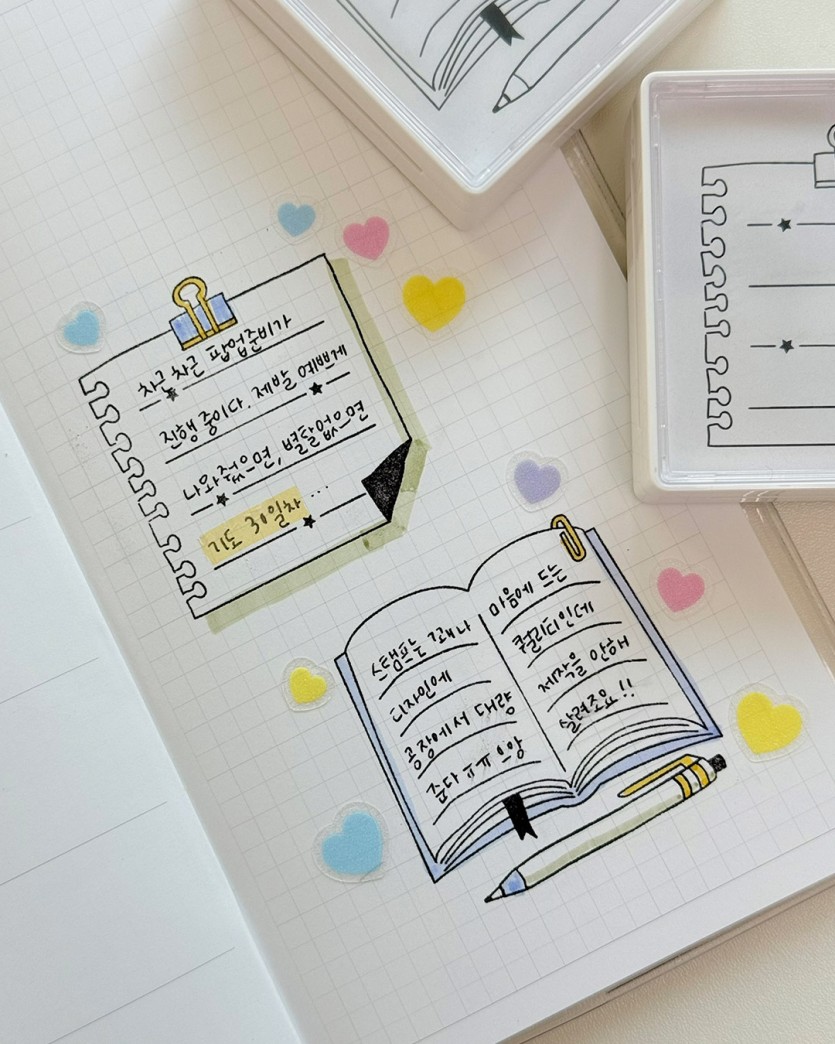 차근 차근 팝업준비가
진행 중이다. 제발 예쁘게
나와줬으면, 별탈없으면
기도 30일차 ...
스탬프는 꼬래나
디자인에
공장에서 대량
준다 ㅠㅠ 으앙
마음에 드는
퀄리티인데
제작을 안해
살려주요!!